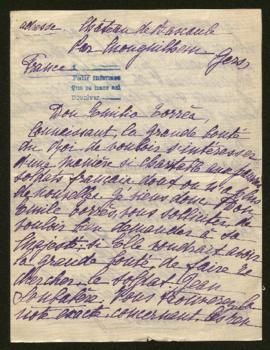 adresse Château de Bascaule
Par Monguilhem
Gers
France
Pedir informes
Que se hace así
Devolver
Don Emilio Torrès,
Connaissant la grande bonté
du Roi de vouloir s'intéresser
d'une manière si charitable aux
soldats français dont on n'a plus
de nouvelles je viens donc Don
Emile Torrès, vous solliciter de
vouloir bien demander à Sa
Majesté si Elle voudrait avoir
la grande bonté de faire re
chercher le soldat Jean
vous trouverez la
note exacte concernant